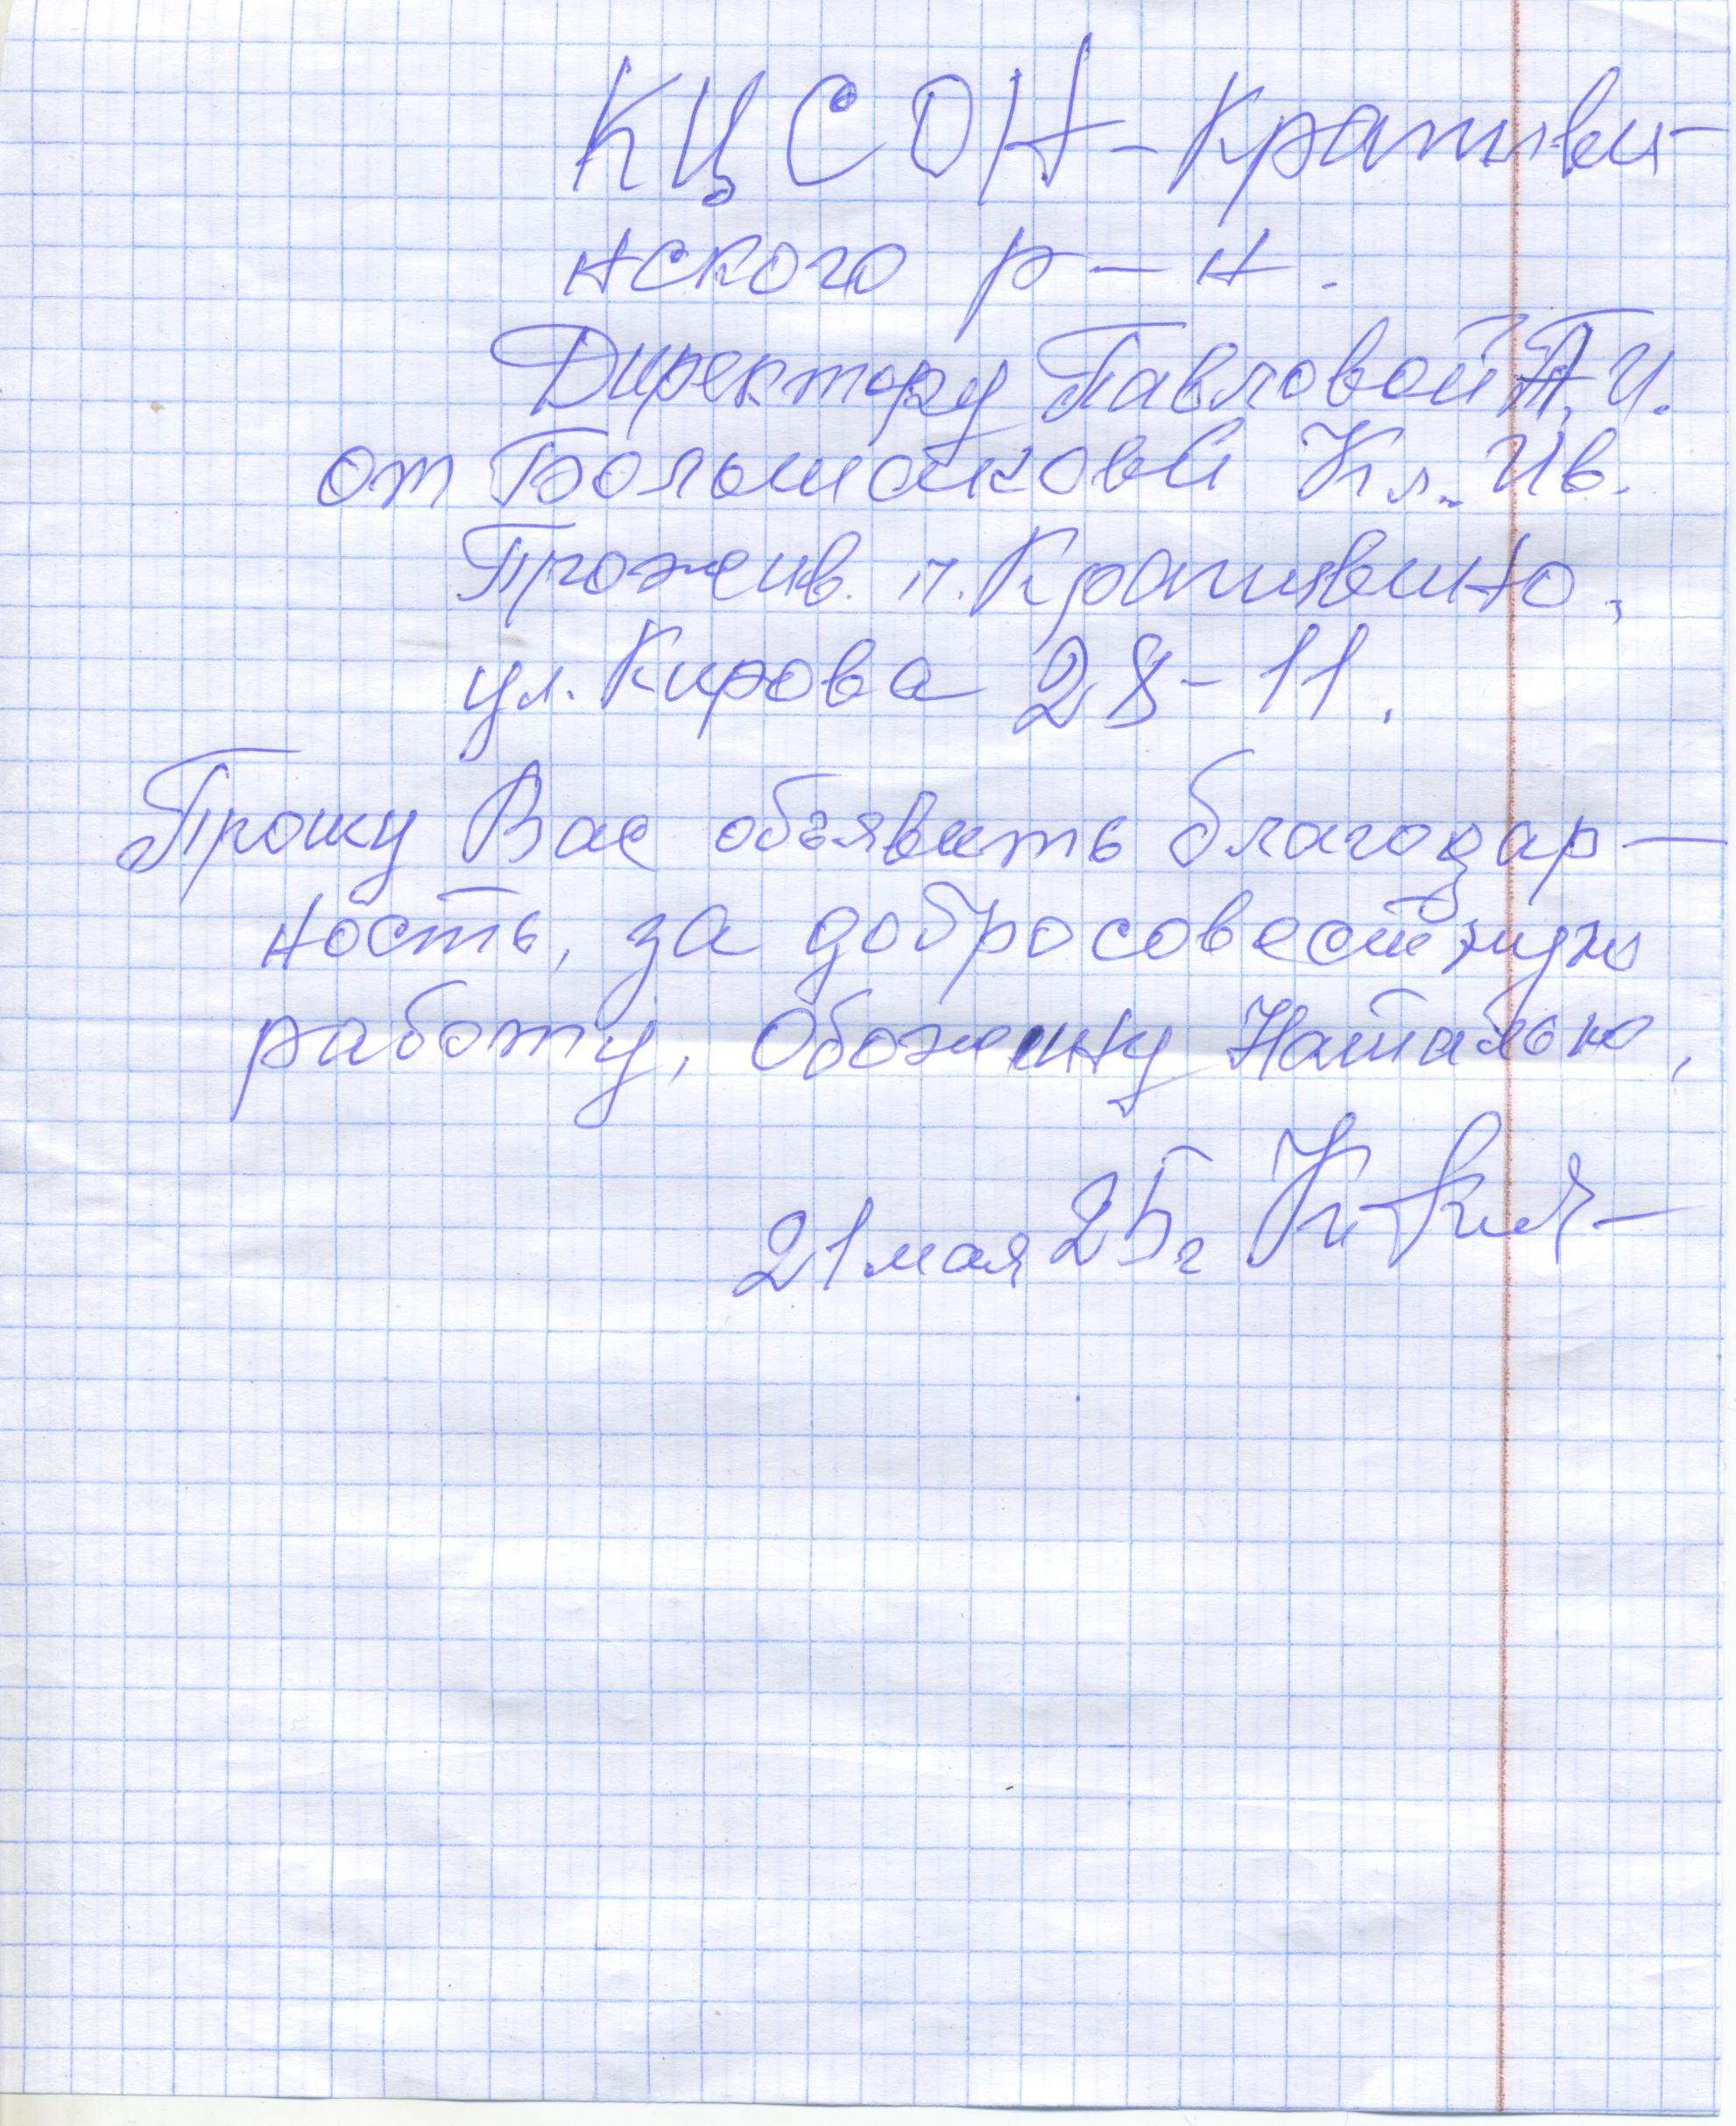 КЦСОН - Крапиви-
нского р-н.
Директору Павловой Т.И.
от Большаковой Кл. Ив.
Прожив. п. Крапивино,
ул. Кирова 28-11.
Прошу Вас объявить благодар-
ность, за добросовестную
работу, Обожину Наталью,
21 мая 25 г